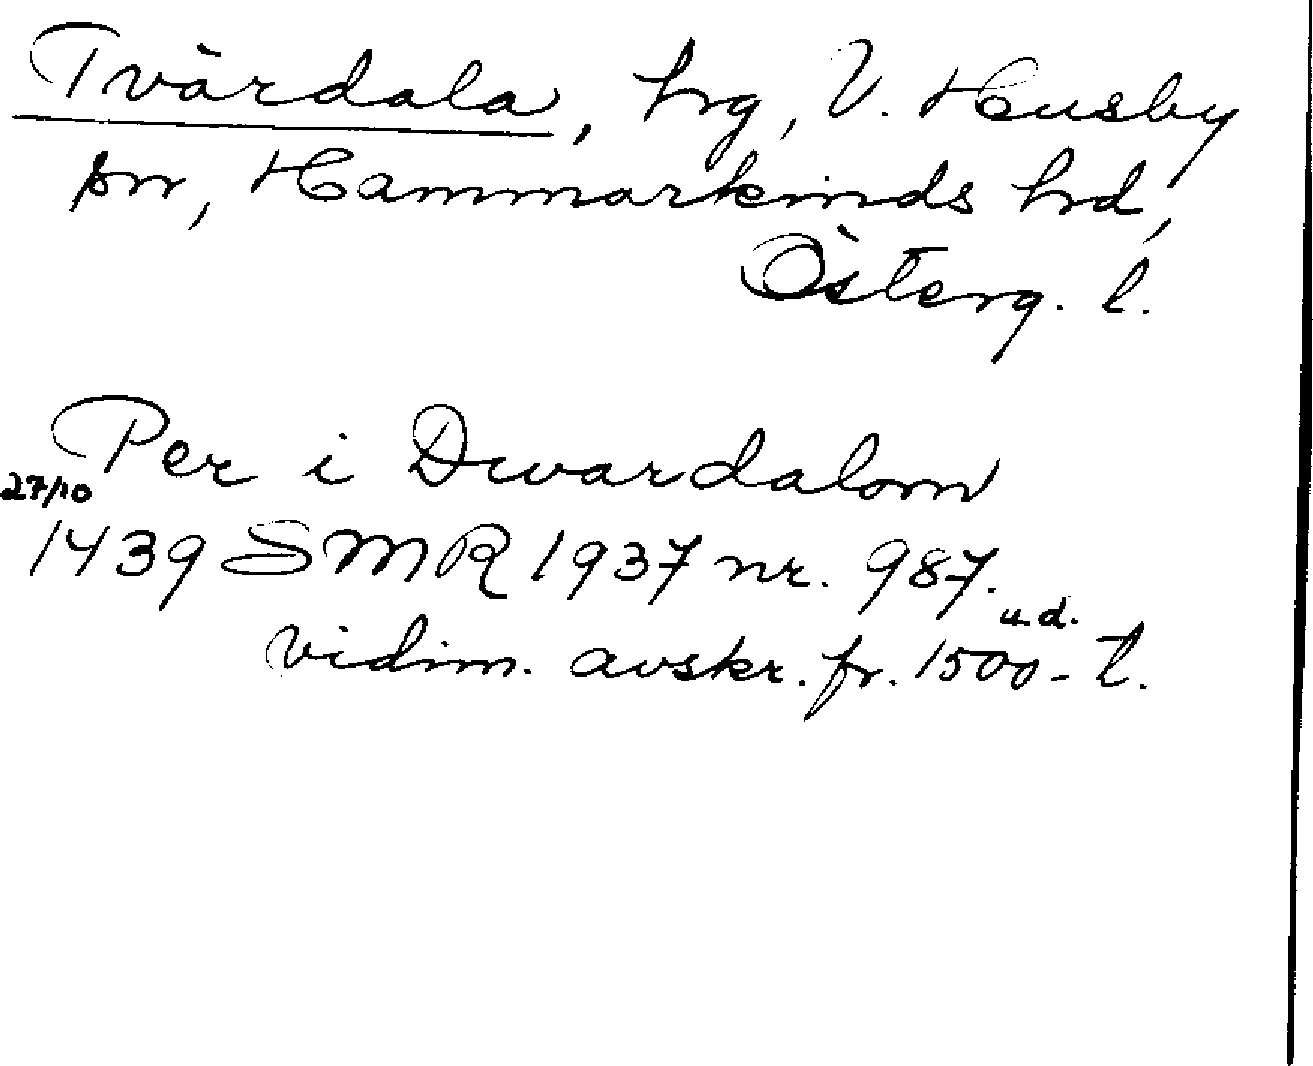 Tvärdala, hrg, V. Husby
sn, Hammarkinds hrd,
Österg. l.
Per i Dwardalom
27/10
1439 SMR 1937 nr. 987.
u.d.
vidim. avskr. fr. 1500-t.